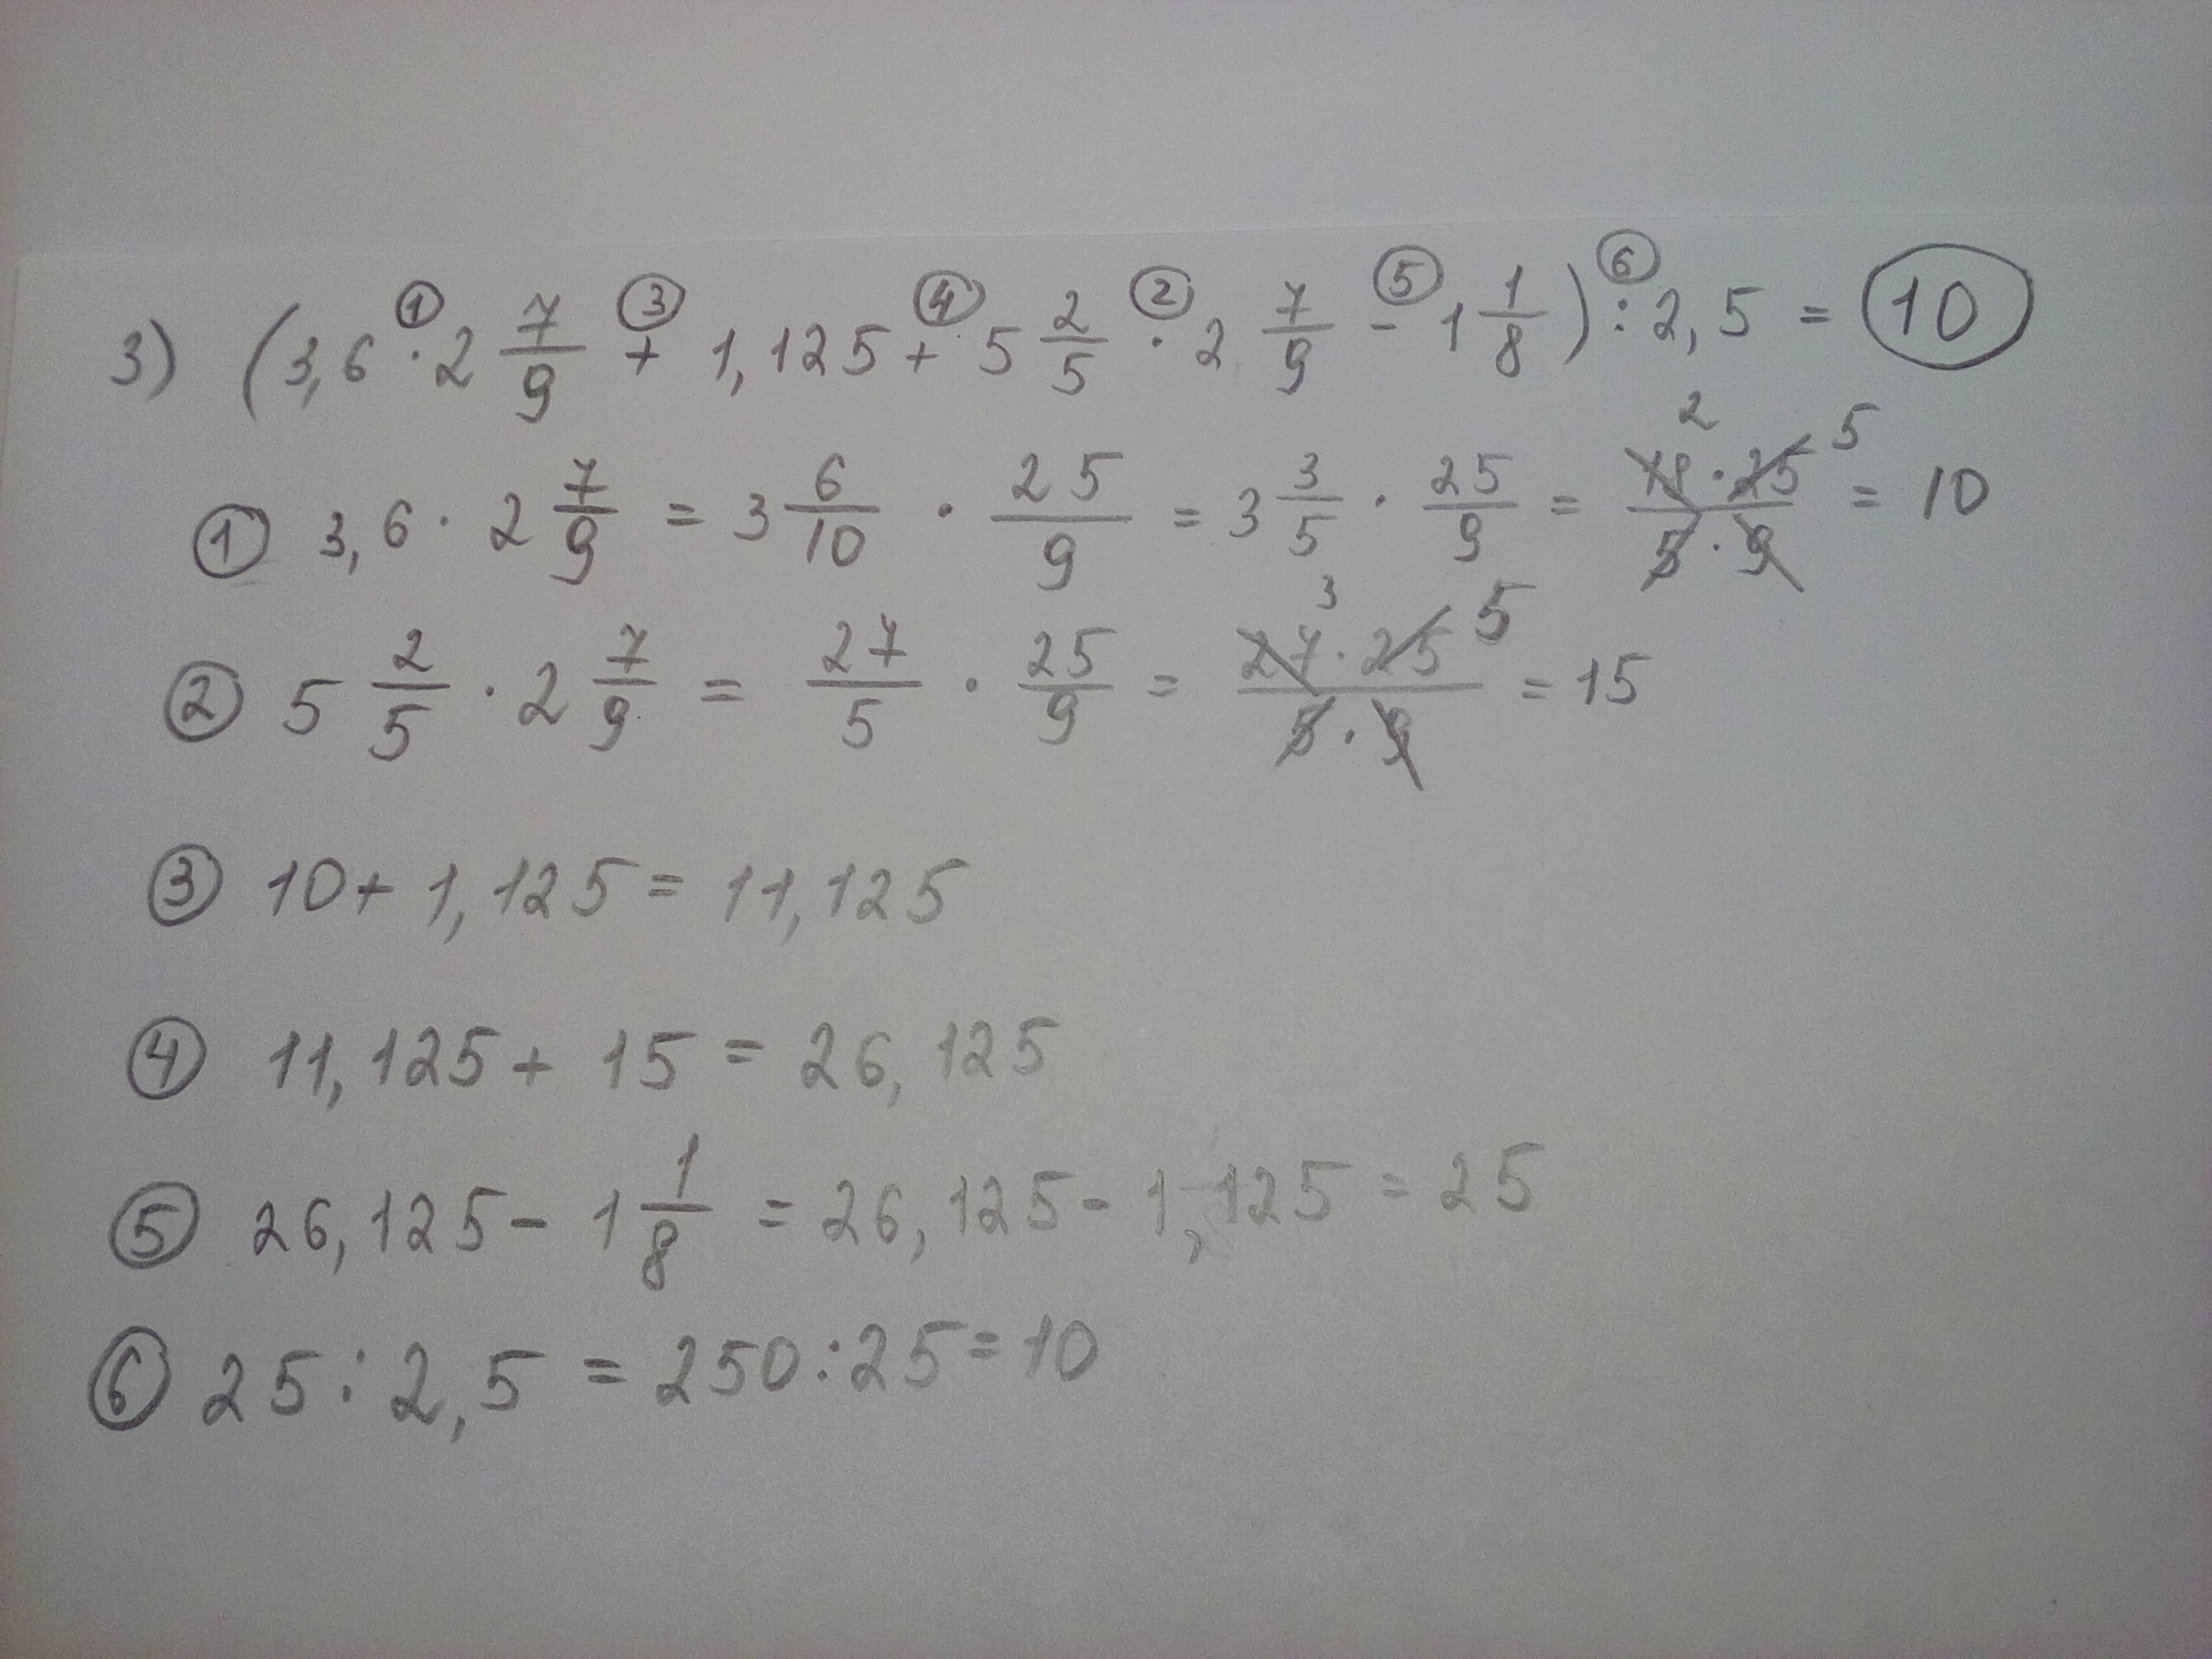 3) (3,6 ① · 2 7/9 ③ + 1,125 ④ + 5 2/5 ② · 2 7/9 ⑤ - 1 1/8) ⑥ : 2,5 = 10
① 3,6 · 2 7/9 = 3 6/10 · 25/9 = 3 3/5 · 25/9 = 18 2 · 25 5 / 5 · 9 = 10
② 5 2/5 · 2 7/9 = 27/5 · 25/9 = 27 3 · 25 5 / 5 · 9 = 15
③ 10 + 1,125 = 11,125
④ 11,125 + 15 = 26,125
⑤ 26,125 - 1 1/8 = 26,125 - 1,125 = 25
⑥ 25 : 2,5 = 250 : 25 = 10